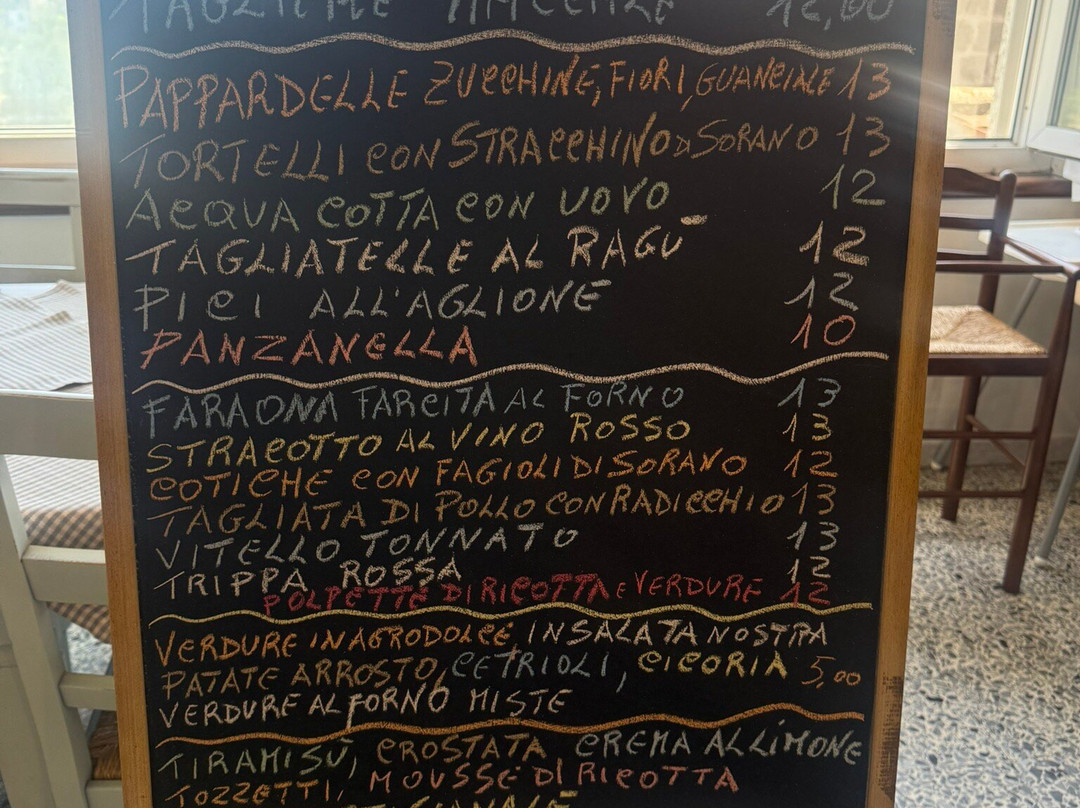 TAGLIERE 12,00
PAPPARDELLE ZUCCHINE, FIORI, GUANCIALE 13
TORTELLI CON STRACCHINO DI SORANO 13
ACQUA COTTA CON UOVO 12
TAGLIATELLE AL RAGÙ 12
PICI ALL'AGLIONE 12
PANZANELLA 10
FARAONA FARCITA AL FORNO 13
STRACOTTO AL VINO ROSSO 13
COTICHE CON FAGIOLI DI SORANO 12
TAGLIATA DI POLLO CON RADICCHIO 13
VITELLO TONNATO 13
TRIPPA ROSSA 12
POLPETTE DI RICOTTA E VERDURE 12
VERDURE IN AGRODOLCE, INSALATA NOSTRA
PATATE ARROSTO, CETRIOLI, CICORIA 5,00
VERDURE AL FORNO MISTE
TIRAMISÙ, CROSTATA CREMA AL LIMONE
TOZZETTI, MOUSSE DI RICOTTA